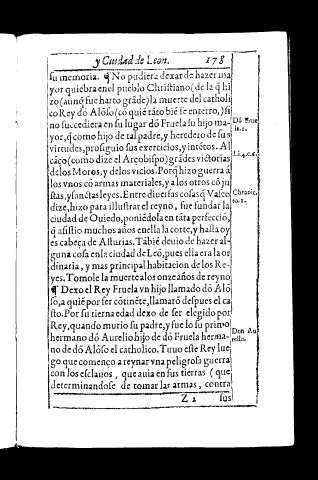 y Ciudad de Leon. 178
su memoria. ¶ No pudiera dexar de hazer ma
yor quiebra en el pueblo Christiano (de la q̃ hi
zo (aunq̃ fue harto grãde) la muerte del catholi
co Rey dõ Alõso (cõ quiẽ tãto biẽ se enterro,) si
no succediera en su lugar dõ Fruela su hijo ma-
yor, q̃ como hijo de tal padre, y heredero de sus
virtudes, prosiguio sus exercicios, y intẽtos. Al
cãço (como dize el Arçobispo) grãdes victorias
de los Moros, y de los vicios. Porq̃ hizo guerra á
los vnos cõ armas materiales, y a los otros cõ ju
stas, y sanctas leyes. Entre diuersas cosas q̃ Vaseo
dize, hizo para illustrar el reyno, fue fundar la
ciudad de Ouiedo, poniẽdola en tãta perfecciõ,
q̃ asistio muchos años en ella la corte, y hasta oy
es cabeça de Asturias. Tãbiẽ deuio de hazer al-
guna cosa en la ciudad de Leõ, pues ella era la or
dinaria, y mas principal habitacion de los Re-
yes. Tomole la muerte a los onze años de reyno
¶ Dexo el Rey Fruela vn hijo llamado dõ Alõ
so, a quiẽ por ser cõtinẽte, llamarõ despues el ca
sto. Por su tierna edad dexo de ser elegido por
Rey, quando murio su padre, y fue lo su primo
hermano dõ Aurelio hijo de dõ Fruela herma-
no de dõ Alõso el catholico. Tuuo este Rey lue-
go que començo a reynar vna peligrosa guerra
con los esclauos, que auia en sus tierras (que
determinandose de tomar las armas, contra
Z 2 sus
Dõ Frue
la.1.
Li.4.c.6.
Chronic.
to.1.
Don Au
relio.